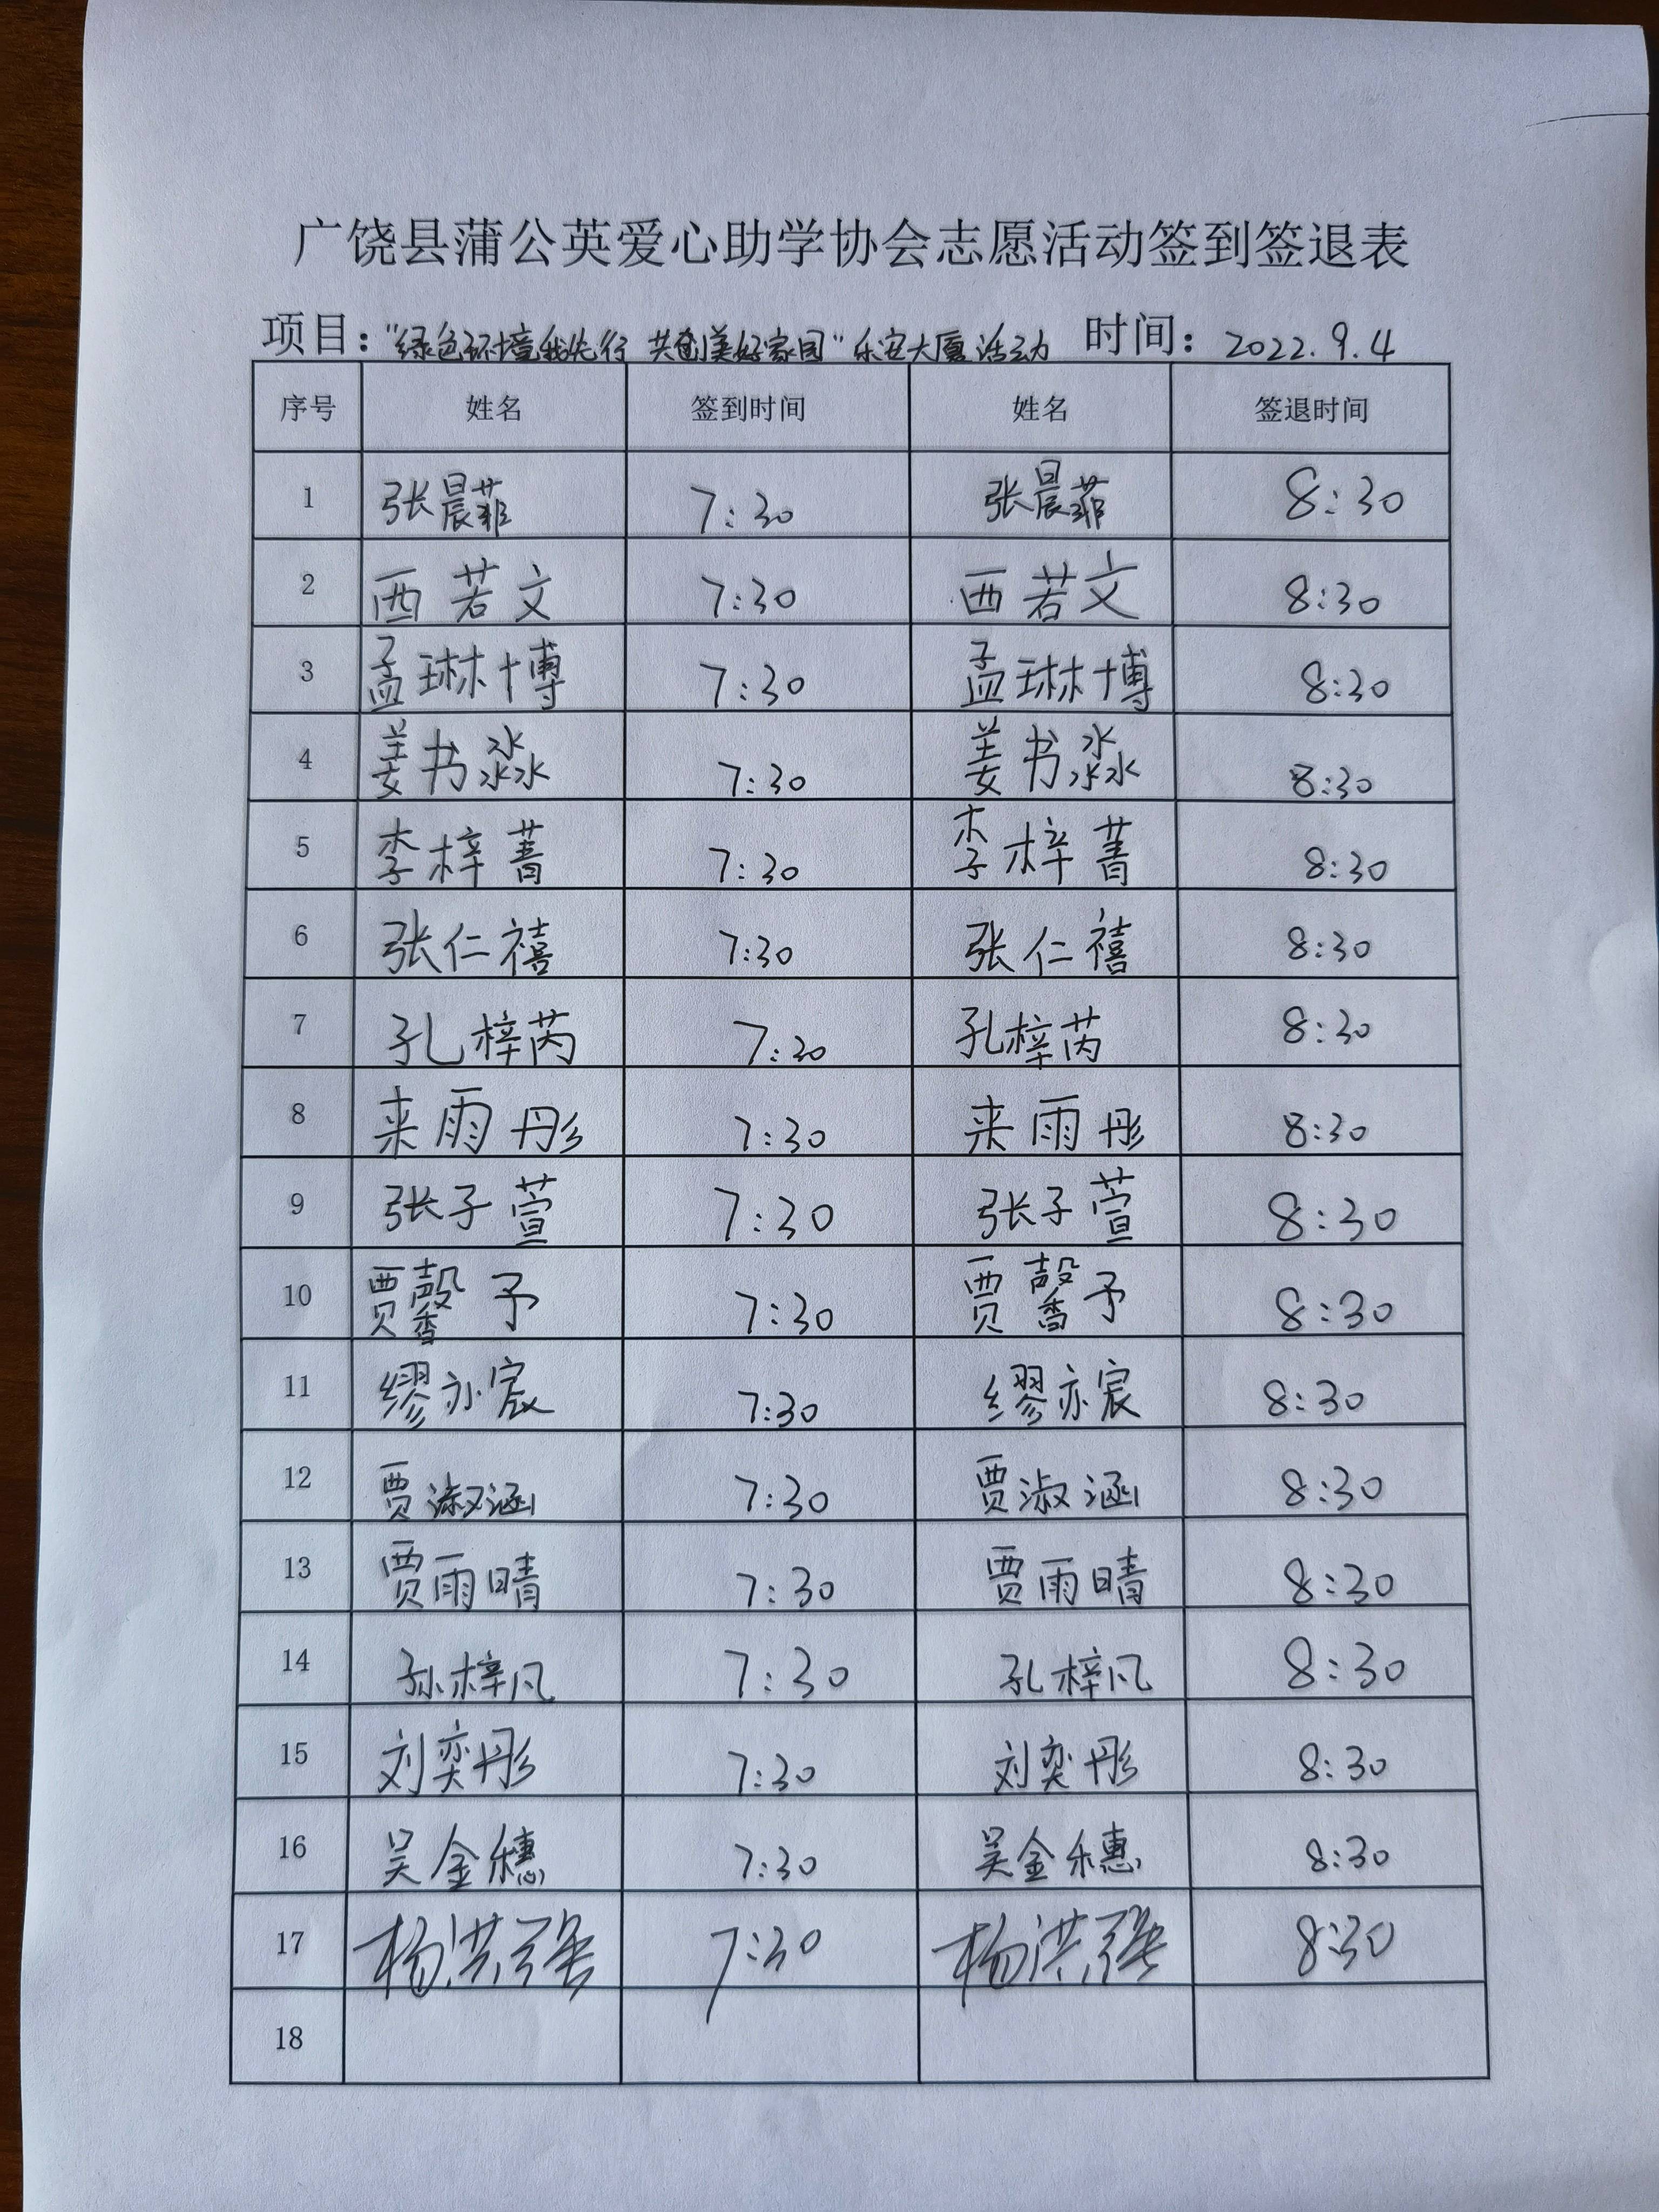 广饶县蒲公英爱心助学协会志愿活动签到签退表
项目："绿色环境我先行 共创美好家园"乐安大厦活动 时间：2022.9.4
序号 姓名 签到时间 姓名 签退时间
1 张晨菲 7:30 张晨菲 8:30
2 西若文 7:30 西若文 8:30
3 孟琳博 7:30 孟琳博 8:30
4 姜书淼 7:30 姜书淼 8:30
5 李梓菁 7:30 李梓菁 8:30
6 张仁禧 7:30 张仁禧 8:30
7 孔梓芮 7:30 孔梓芮 8:30
8 来雨彤 7:30 来雨彤 8:30
9 张子萱 7:30 张子萱 8:30
10 贾馨予 7:30 贾馨予 8:30
11 缪亦宸 7:30 缪亦宸 8:30
12 贾淑涵 7:30 贾淑涵 8:30
13 贾雨晴 7:30 贾雨晴 8:30
14 孙梓凡 7:30 孔梓凡 8:30
15 刘奕彤 7:30 刘奕彤 8:30
16 吴金穗 7:30 吴金穗 8:30
17 杨洪强 7:30 杨洪强 8:30
18